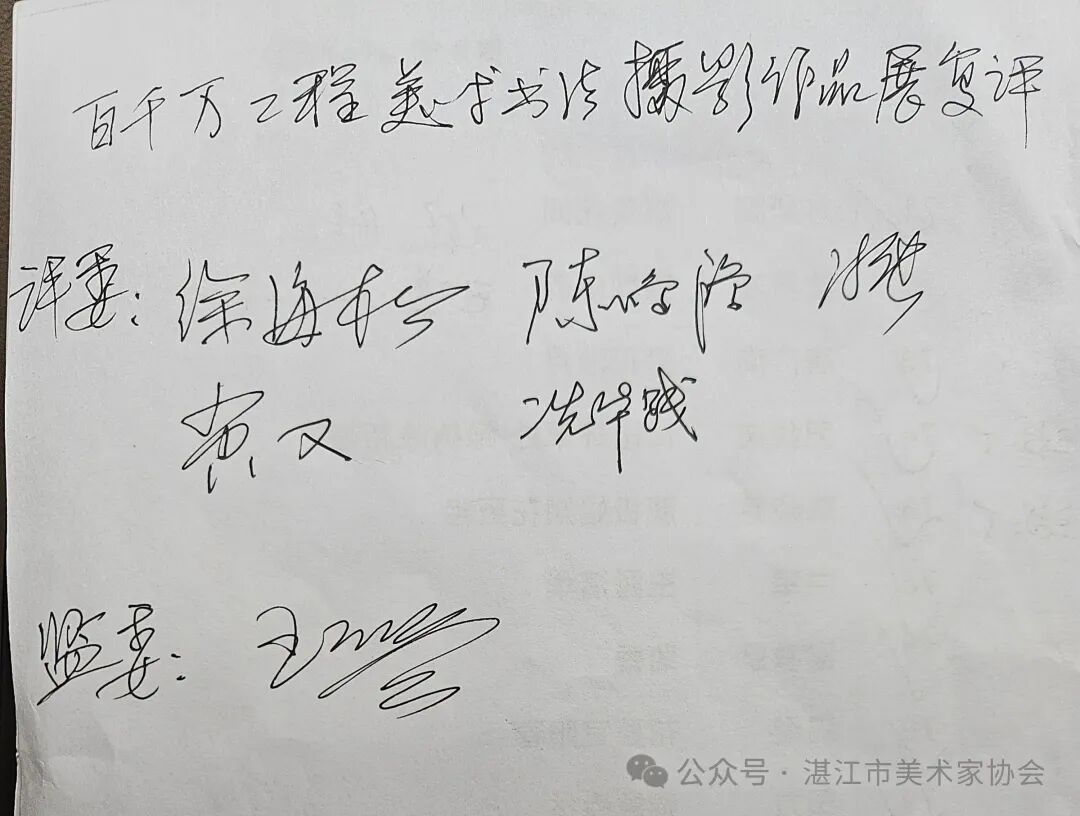 百千万工程美术书法摄影作品展复评
评委：徐海松 陈
黄又 冼华践
监委：王
公众号·湛江市美术家协会